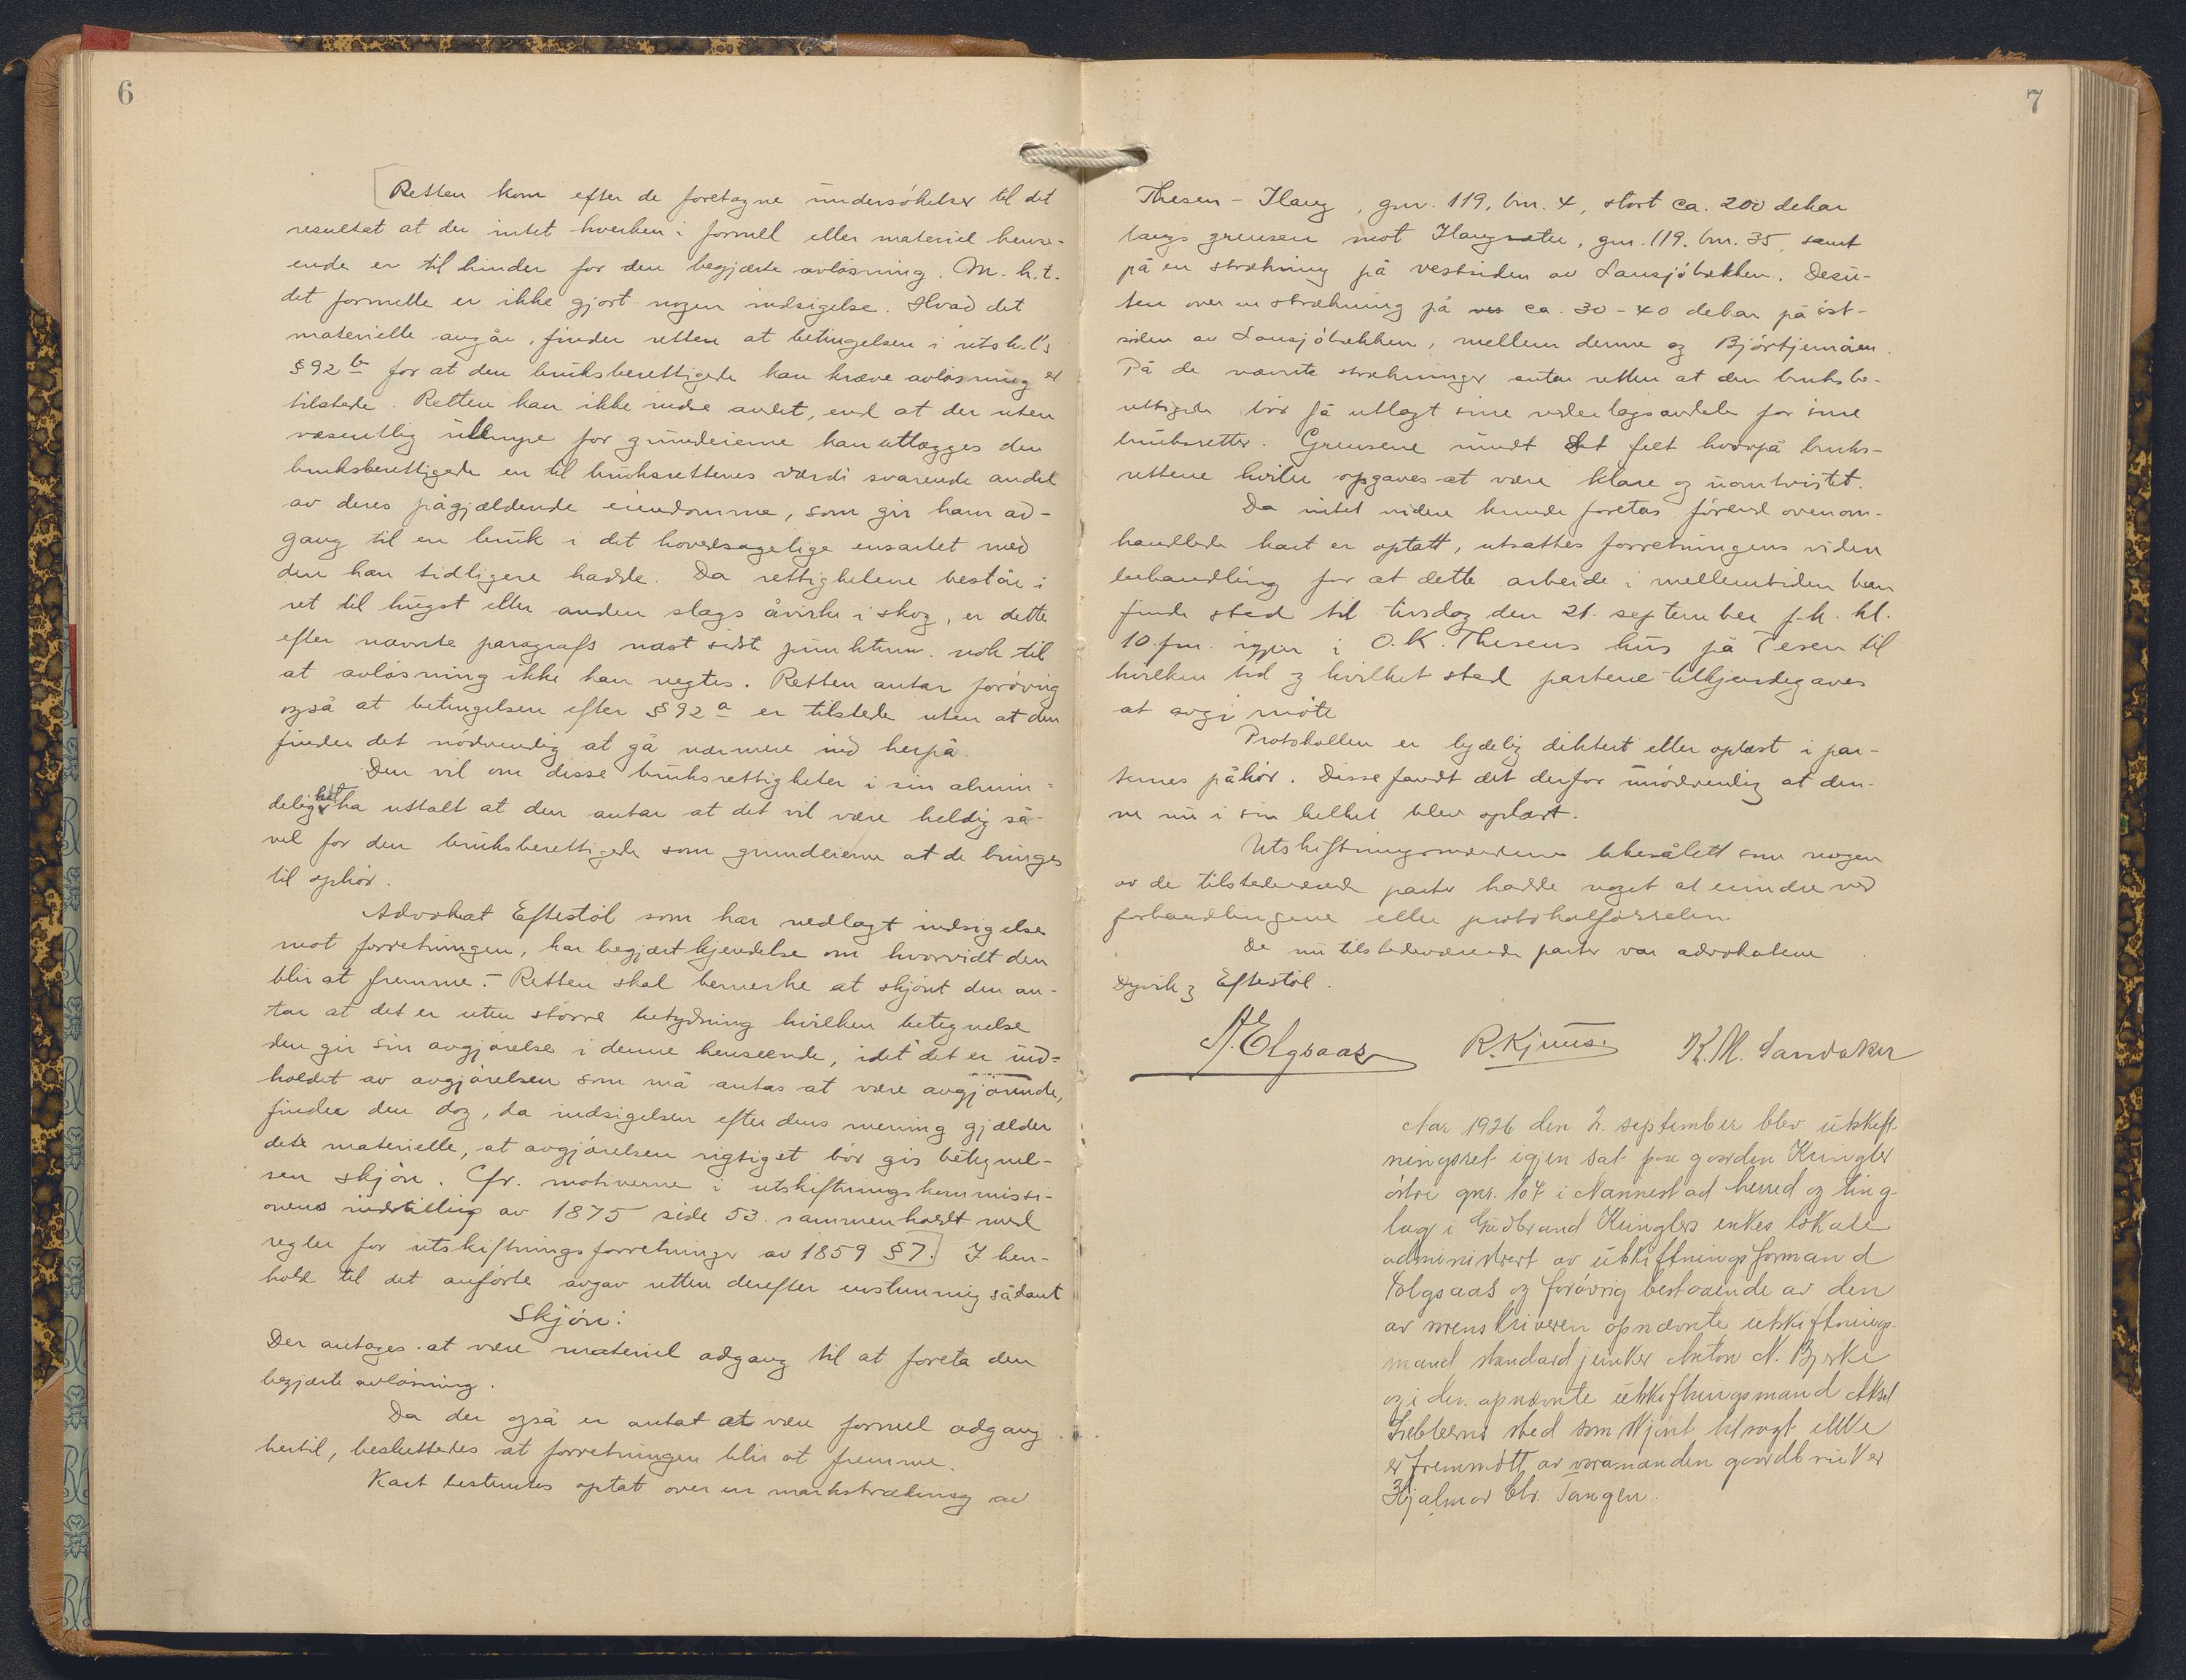 6
[Retten kom efter de foretagne undersøkelser til det
resultat at der intet hverken i formell eller materiel hense-
ende er til hinder for den begjærte avløsning. M. h. t.
det formelle er ikke gjort nogen indsigelse. Hvad det
materielle angår, finder retten at betingelsen i utsk.l's
§ 92 b for at den bruksberettigede kan kræve avløsning er
tilstede. Retten kan ikke rette andet, end at der uten
væsentlig ulempe for grundeierne kan utlægges den
bruksberettigede en til bruksrettenes værdi svarende andel
av deres pågjældende eiendomme, som gir ham ad-
gang til en bruk i det hovedsagelige ensartet med
den han tidligere hadde. Da rettighetene består i
ret til hugst eller anden slags åvirke i skog, er dette
efter nævnte paragrafs næst sidste punktum nok til
at avløsning ikke kan negtes. Retten antar forøvrig
også at betingelsen efter § 92 a er tilstede uten at den
finder det nødvendig at gå nærmere ind herpå.
Den vil om disse bruksrettigheter i sin almin-
delighet ha uttalt at den antar at det vil være heldig så-
vel for den bruksberettigede som grundeierne at de bringes
til ophør.
Advokat Eftestøl som har nedlagt indsigelse
mot forretningen, har begjært kjendelse om hvorvidt den
blir at fremme. - Retten skal bemerke at skjønt den an-
tar at det er uten større betydning hvilken betegnelse
den gir sin avgjørelse i denne henseende, idet det er ind-
holdet av avgjørelsen som må antas at være avgjørende,
finder den dog, da indsigelsen efter dens mening gjælder
det materielle, at avgjørelsen rigtigst bør gis betegnel-
sen skjøn. Cfr. motiverne i utskiftningskommissi-
onens indstilling av 1875 side 53 sammenholdt med
regler for utskiftningsforretninger av 1859 § 7.] I hen-
hold til det anførte avgav retten derefter enstemmig sådant
Skjøn:
Der antages at være materiel adgang til at foreta den
begjærte avløsning.
Da der også er antat at være formel adgang
hertil, besluttedes at forretningen blir at fremme.
Kart bestemtes optat over en markstrækning av
7
Thesen - Haug, gnr. 119, bnr. 4, stort ca. 200 dekar
langs grensen mot Haugsæter, gnr. 119. bnr. 35, samt
på en strækning på vestsiden av Lansjøbækken. Desu-
ten over en strækning på ca. 30 - 40 dekar på øst-
siden av Lansjøbækken, mellem denne og Bjørtjernåen.
På de nævnte strækninger antar retten at den bruksbe-
rettigede bør få utlagt sine vederlagsandele for sine
bruksretter. Grensene rundt det felt hvorpå bruks-
rettene hviler opgaves at være klare og uomtvistet.
Da intet videre kunde foretas førend ovenom-
handlede kart er optatt, utsattes forretningens videre
behandling for at dette arbeide i mellemtiden kan
finde sted til tirsdag den 21. september f. k. kl.
10 fm. igjen i O. K. Thesens hus på Tesen til
hvilken tid og hvilket sted partene tilkjendegaves
at avgi møte
Protokollen er lydelig diktert eller oplæst i par-
ternes påhør. Disse fandt det derfor unødvendig at den-
ne nu i sin helhet blev oplæst.
Utskiftningsmændene likesålitt som nogen
av de tilstedeværende parter hadde noget at erindre ved
forhandlingene eller protokolførselen.
De nu tilstedeværende parter var advokatene
Dyvik og Eftestøl.
A. Elgsaas R. Kjuus. K. M. Sandaker
Aar 1926 den 2. september blev utskift-
ningsret igjen sat paa gaarden Kringler
østre gnr. 107 i Nannestad herred og ting-
lag i Gudbrand Kringlers enkes lokale
administrert av utskiftningsformand
Elgsaas og forøvrig bestaaende av den
av sorenskriveren opnævnte utskiftnings-
mand standardjunker Anton N. Bjerke
og i den opnævnte utskiftningsmand Aksel
sted som skjønt tilsagt ikke
er fremmøtt av varamanden gaardbruker
Hjalmar Chr. Tangen.